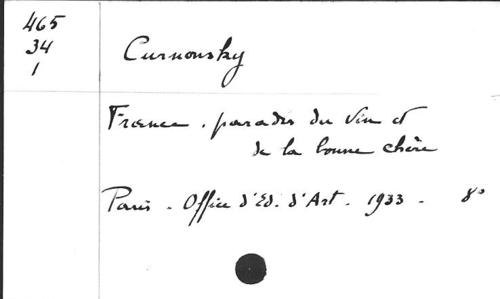 465
34
1
Curnonsky
France. paradis du vin et
de la bonne chère
Paris - Office d'Ed. d'Art - 1933 - 8°